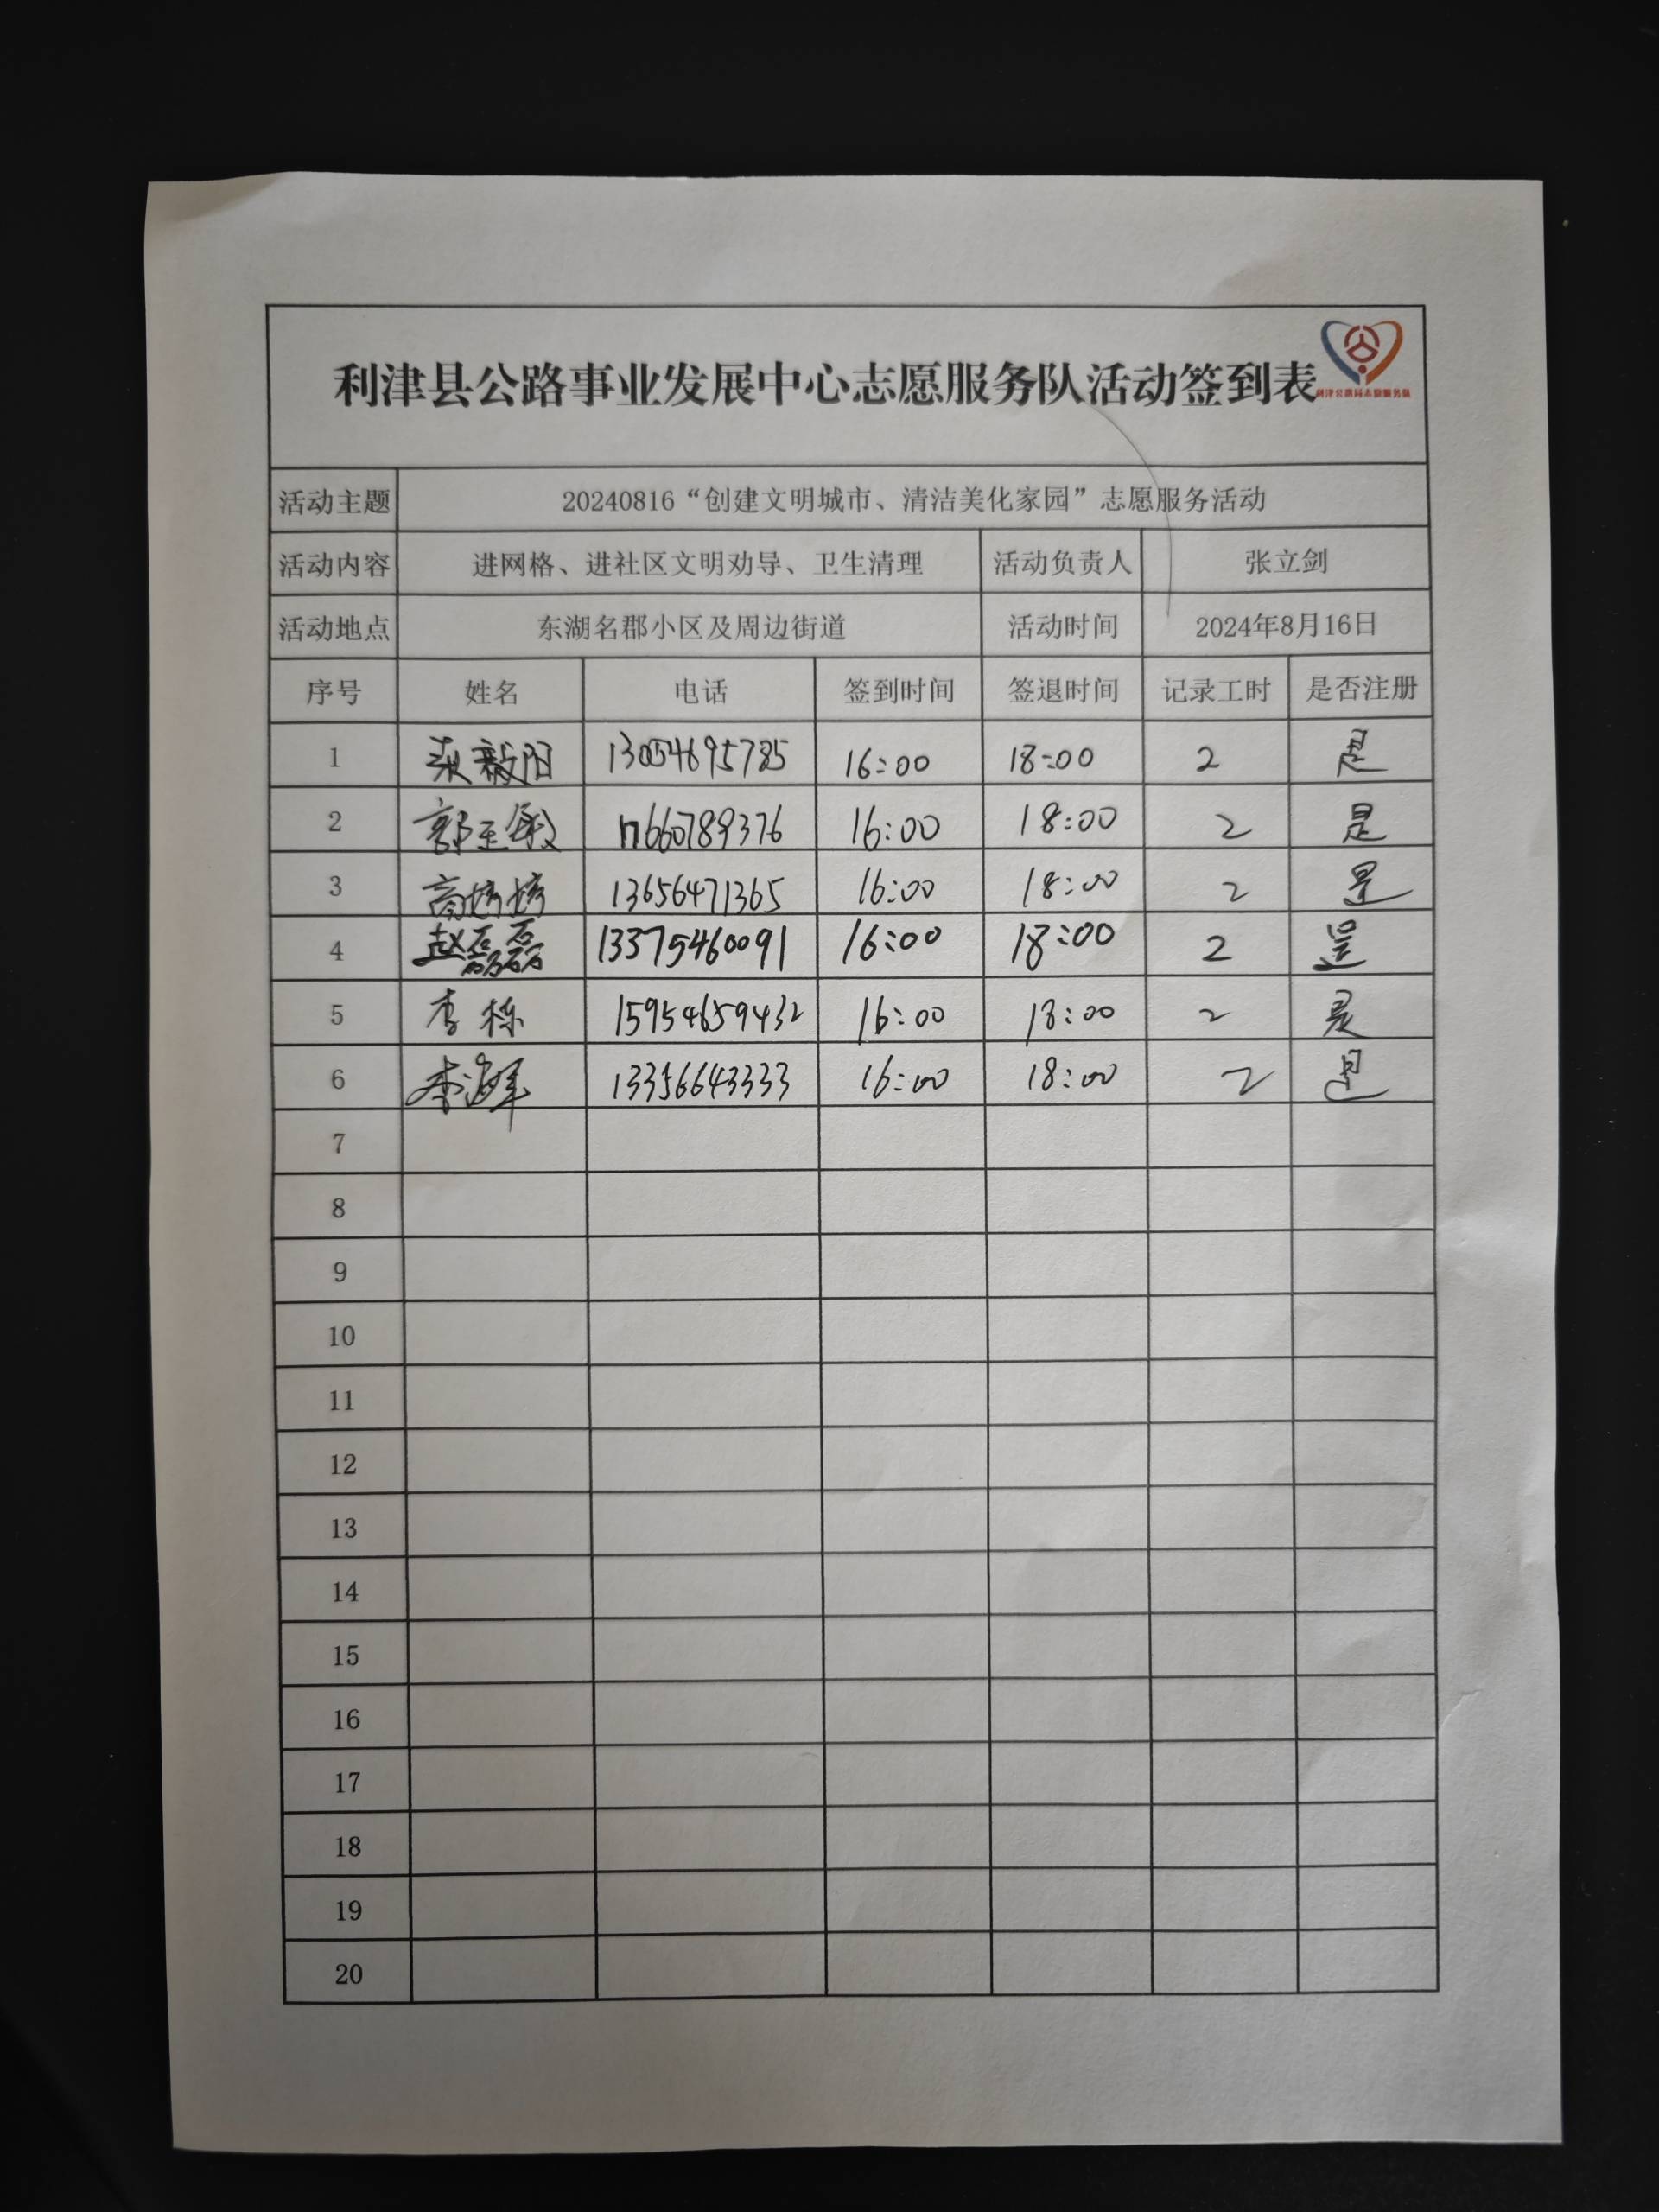 利津县公路事业发展中心志愿服务队活动签到表
利津公路局志愿服务队
活动主题 20240816“创建文明城市、清洁美化家园”志愿服务活动
活动内容 进网格、进社区文明劝导、卫生清理 活动负责人 张立剑
活动地点 东湖名郡小区及周边街道 活动时间 2024年8月16日
序号 姓名 电话 签到时间 签退时间 记录工时 是否注册
1 毅阳 13054695785 16:00 18:00 2 是
2 郭玉敏 17660789376 16:00 18:00 2 是
3 高婷婷 13656471365 16:00 18:00 2 是
4 赵磊磊 13375460091 16:00 18:00 2 是
5 李栋 15954659432 16:00 18:00 2 是
6 李海军 13356643333 16:00 18:00 2 是
7
8
9
10
11
12
13
14
15
16
17
18
19
20